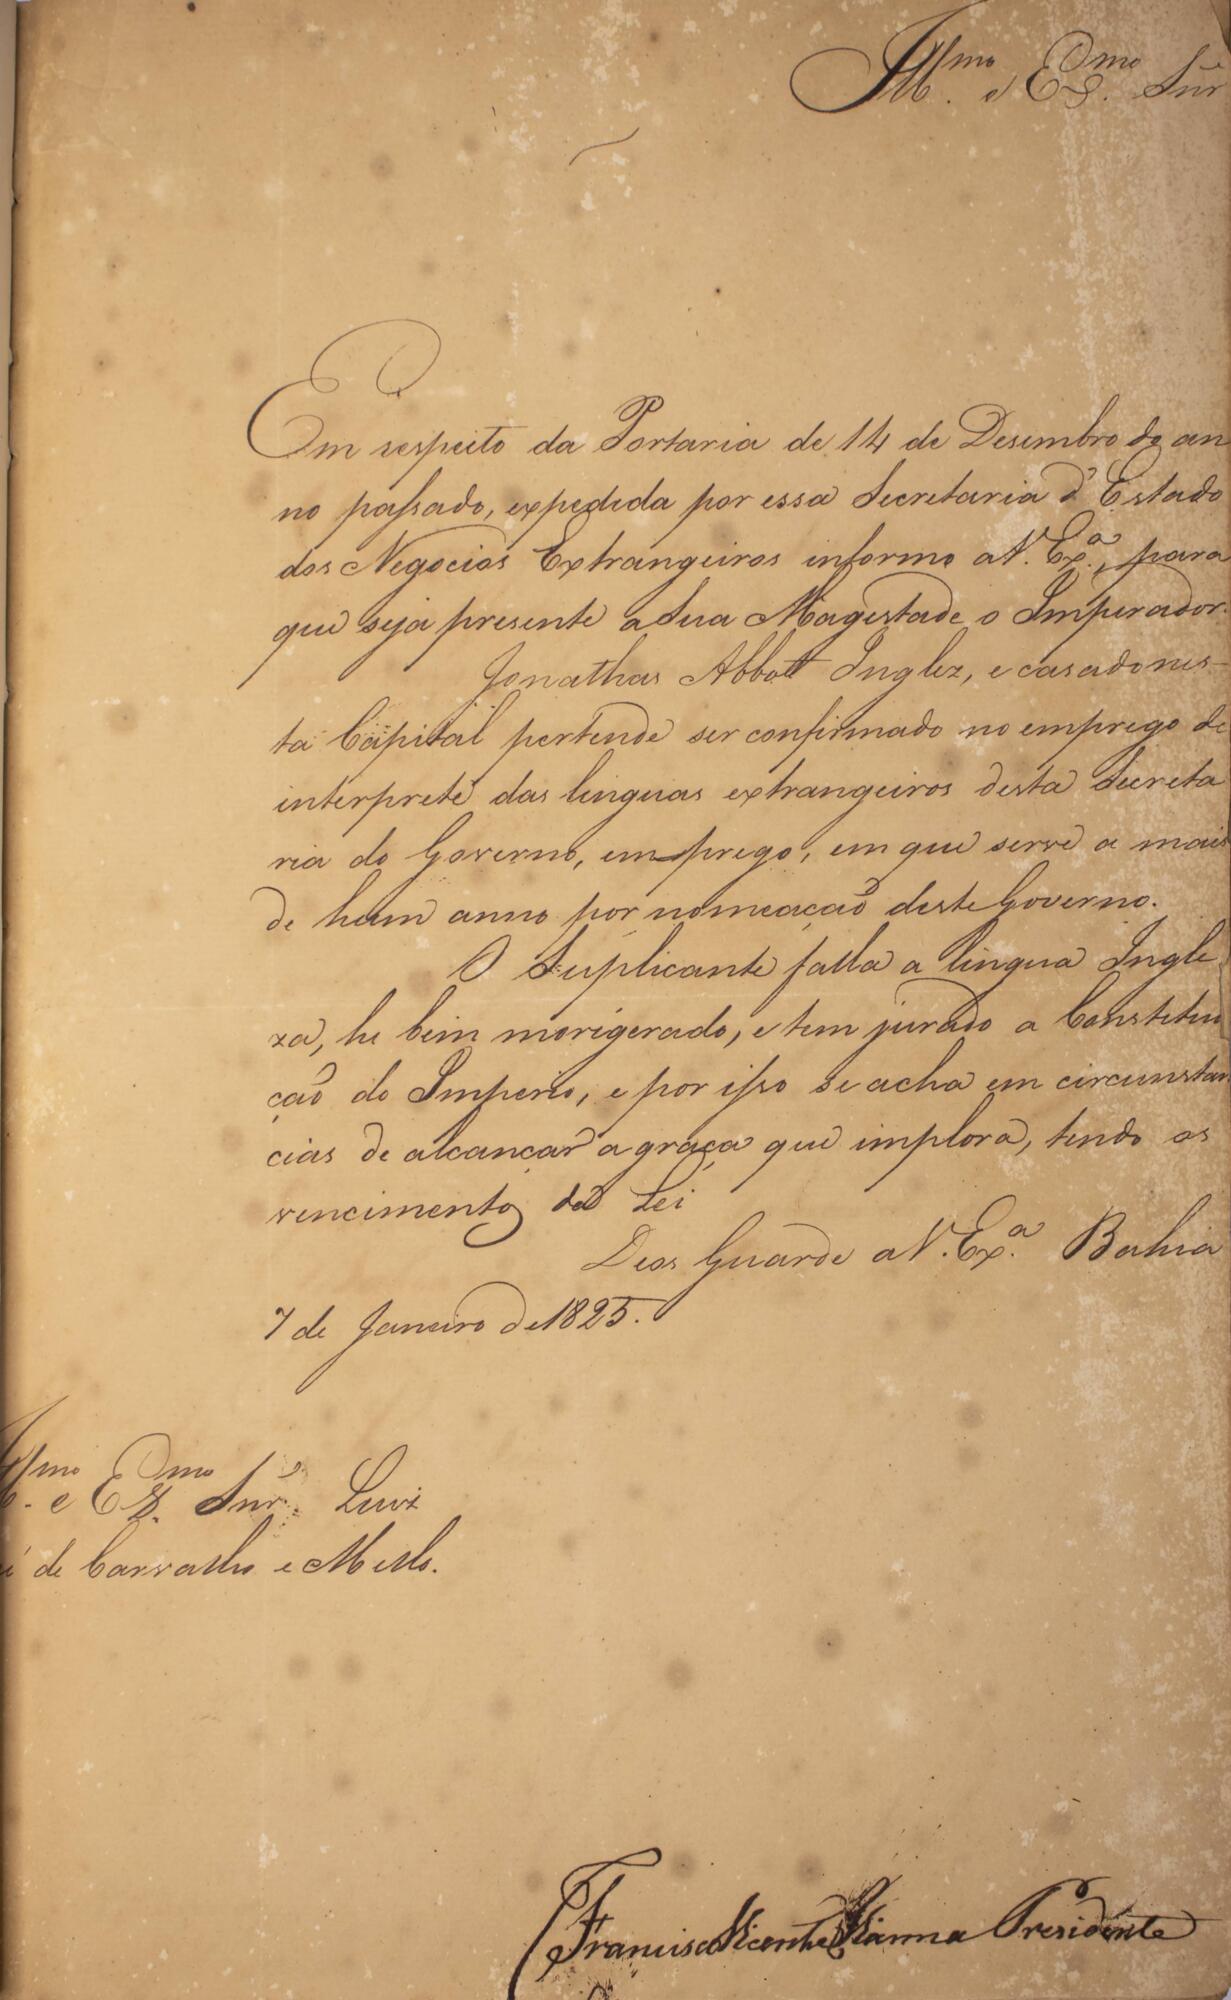 Illmo. e Exmo. Snr
Em respeito da Portaria de 14 de Desembro do an
no passado, expedida por essa Secretaria d'Estado
dos Negocios Extrangeiros informo a V. Exa., para
que seja presente a Sua Magestade o Imperador.
Jonathas Abbott Inglez, e casado nes-
ta Capital pertende ser confirmado no emprego de
interprete das linguas extrangeiros desta Secreta
ria do Governo, emprego, em que serve a mais
de hum anno por nomeação deste Governo.
O Suplicante falla a lingua Ingle
za, he bem morigerado, e tem jurado a Constitui
ção do Imperio, e por isso se acha em circunstan
cias de alcançar a graça que implora, tendo os
vencimentos da Lei
Deos Guarde a V. Exa. Bahia
7 de Janeiro de 1825.
Illmo. e Exmo. Snr. Luiz
de Carvalho e Mello.
Francisco Vicente Vianna Presidente